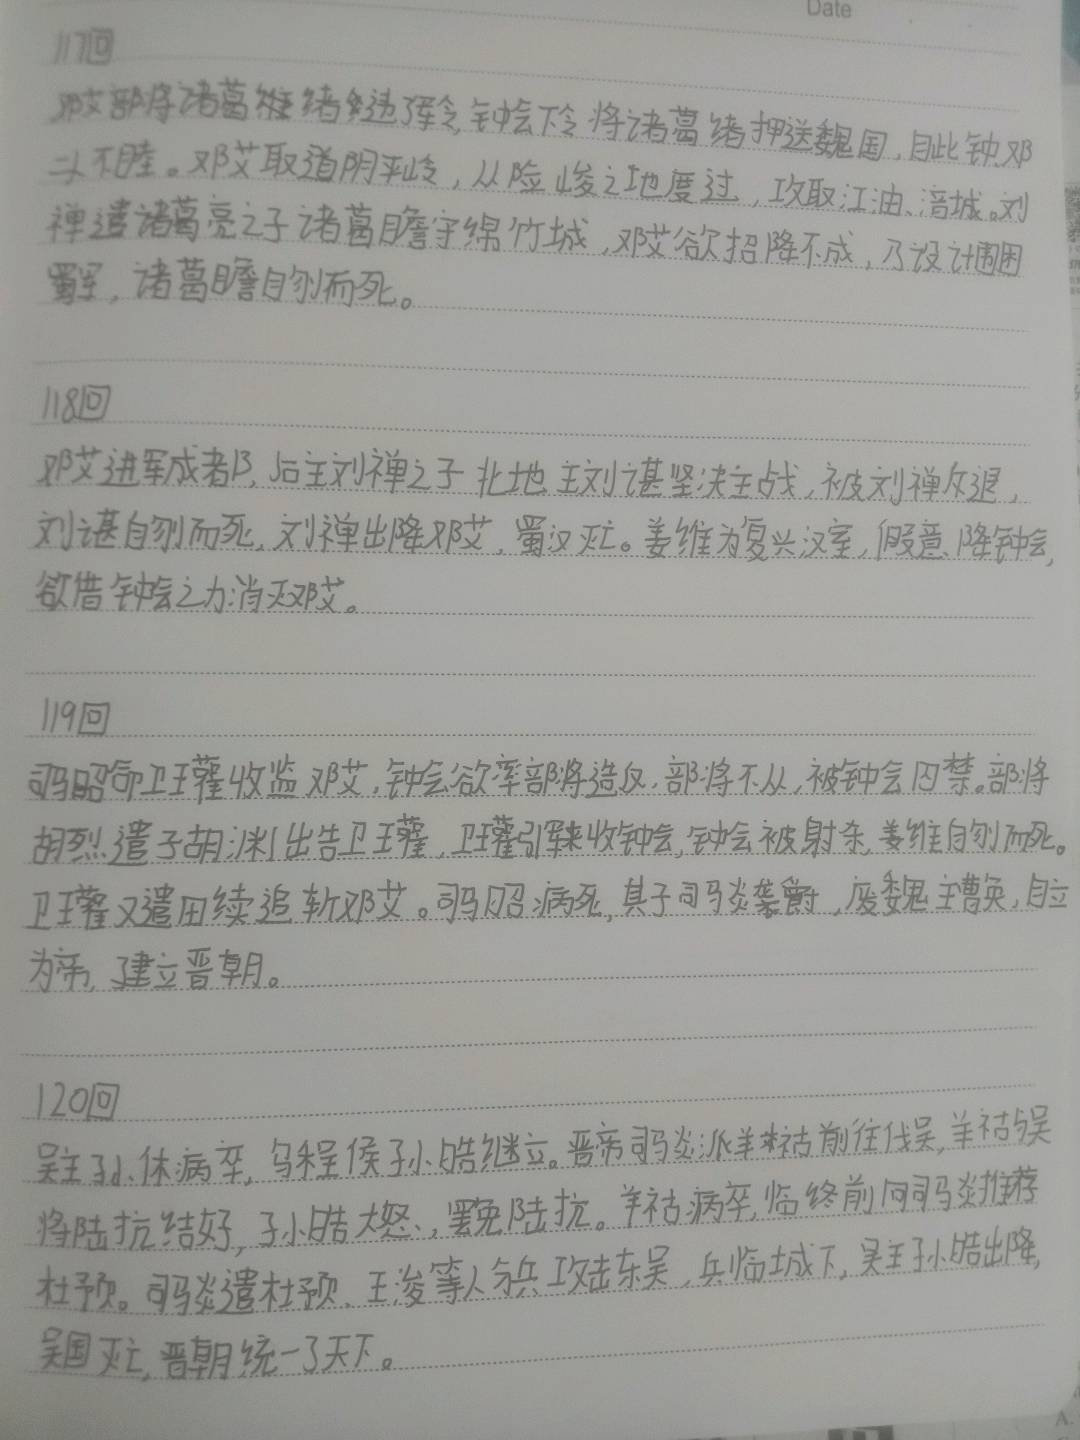 Date
117回
邓艾部将诸葛绪违军令,钟会下令将诸葛绪押送魏国,自此钟邓
二人不睦。邓艾取道阴平岭,从险峻之地度过,攻取江油、涪城。刘
禅遣诸葛亮之子诸葛瞻守绵竹城,邓艾欲招降不成,乃设计围困
蜀军,诸葛瞻自刎而死。
118回
邓艾进军成都,后主刘禅之子北地主刘谌坚决主战,被刘禅斥退,
刘谌自刎而死,刘禅出降邓艾,蜀汉灭亡。姜维为复兴汉室,假意降钟会,
欲借钟会之力消灭邓艾。
119回
司马昭命卫瓘收监邓艾,钟会欲率部将造反,部将不从,被钟会囚禁。部将
胡烈遣子胡渊出告卫瓘,卫瓘引军来收钟会,钟会被射杀,姜维自刎而死。
卫瓘又遣田续追斩邓艾。司马昭病死,其子司马炎袭爵,废魏主曹奂,自立
为帝,建立晋朝。
120回
吴主孙休病卒,乌程侯孙皓继立。晋帝司马炎派羊祜前往伐吴,羊祜与吴
将陆抗结好,孙皓大怒,罢免陆抗。羊祜病卒,临终前向司马炎推荐
杜预。司马炎遣杜预、王浚等人分兵攻击东吴,兵临城下,吴主孙皓出降,
吴国灭亡,晋朝统一了天下。